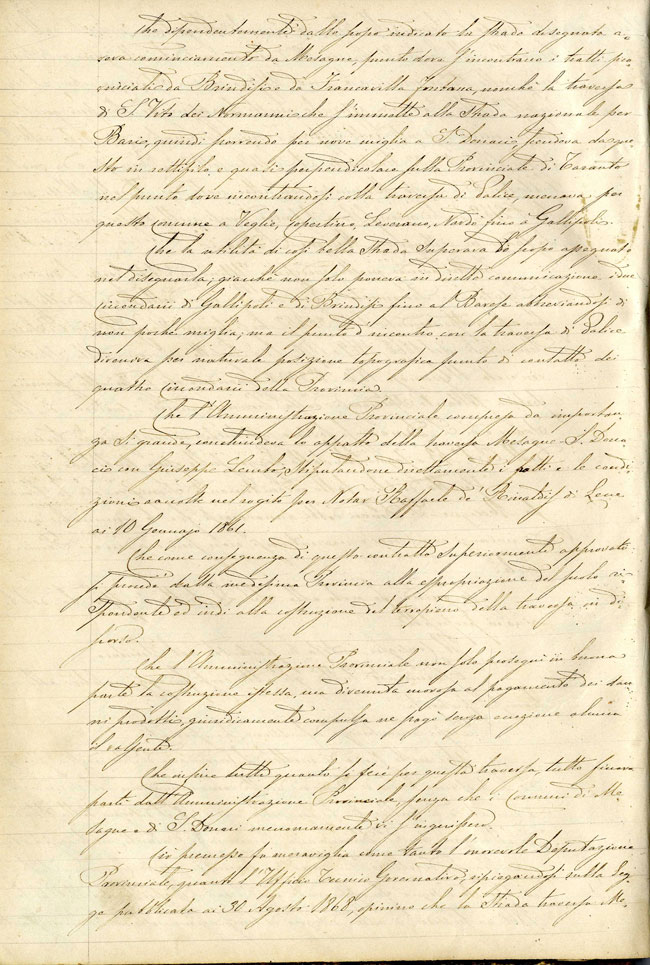 Che dipendentemente dallo scopo indicato la strada designata a-
veva cominciamento da Mesagne, punto dove s'incontrano i tratti pro-
vinciali da Brindisi e da Francavilla Fontana, nonché la traversa
di S. Vito dei Normanni che s'immette alla Strada nazionale per
Bari, quindi scorrendo per nove miglia a S. Donaci, scendeva da que-
sto in rettifilo, e quasi perpendicolare sulla Provinciale di Taranto
nel punto dove incontrandosi colla traversa di Salice, menava per
questo comune a Veglie, Copertino, Leverano, Nardò fino a Gallipoli.
Che la utilità di così bella Strada superava lo scopo assegnato
nel disegnarla; giacché non solo poneva in diretta comunicazione i due
circondarii di Gallipoli e di Brindisi fino al Barese abbreviandosi di
non poche miglia; ma il punto d'incontro con la traversa di Salice
diveniva per naturale posizione topografica punto di contatto dei
quattro circondarii della Provincia.
Che l'Amministrazione Provinciale compresa da importan-
za sì grande, concludeva lo appalto della traversa Mesagne-S. Dona-
ci con Giuseppe Lembo, stipulandone direttamente i patti e le condi-
zioni accolte nel rogito per Notar Raffaele de' Rinaldis di Lecce
ai 10 Gennajo 1861.
Che come conseguenza di questo contratto superiormente approvato
si procedé dalla medesima Provincia alla espropriazione del suolo ri-
spondente ed indi alla costruzione del terrapieno della traversa in di-
scorso.
Che l'Amministrazione Provinciale non solo proseguì in buona
parte la costruzione istessa, ma divenuta morosa al pagamento dei dan-
ni prodotti, giuridicamente compulsa ne pagò senza eccezione alcuna
l'
Che infine tutto quanto si fece per questa traversa, tutto
partì dall'Amministrazione Provinciale, senza che i Comuni di Me-
sagne e di S. Donaci menomamente vi s'ingerissero.
Ciò premesso fa meraviglia come tanto l'onorevole Deputazione
Provinciale, quanto l'Uffizio Tecnico Governativo, sulla Leg-
ge pubblicata ai 30 Agosto 1868, opinino che la Strada traversa Me-